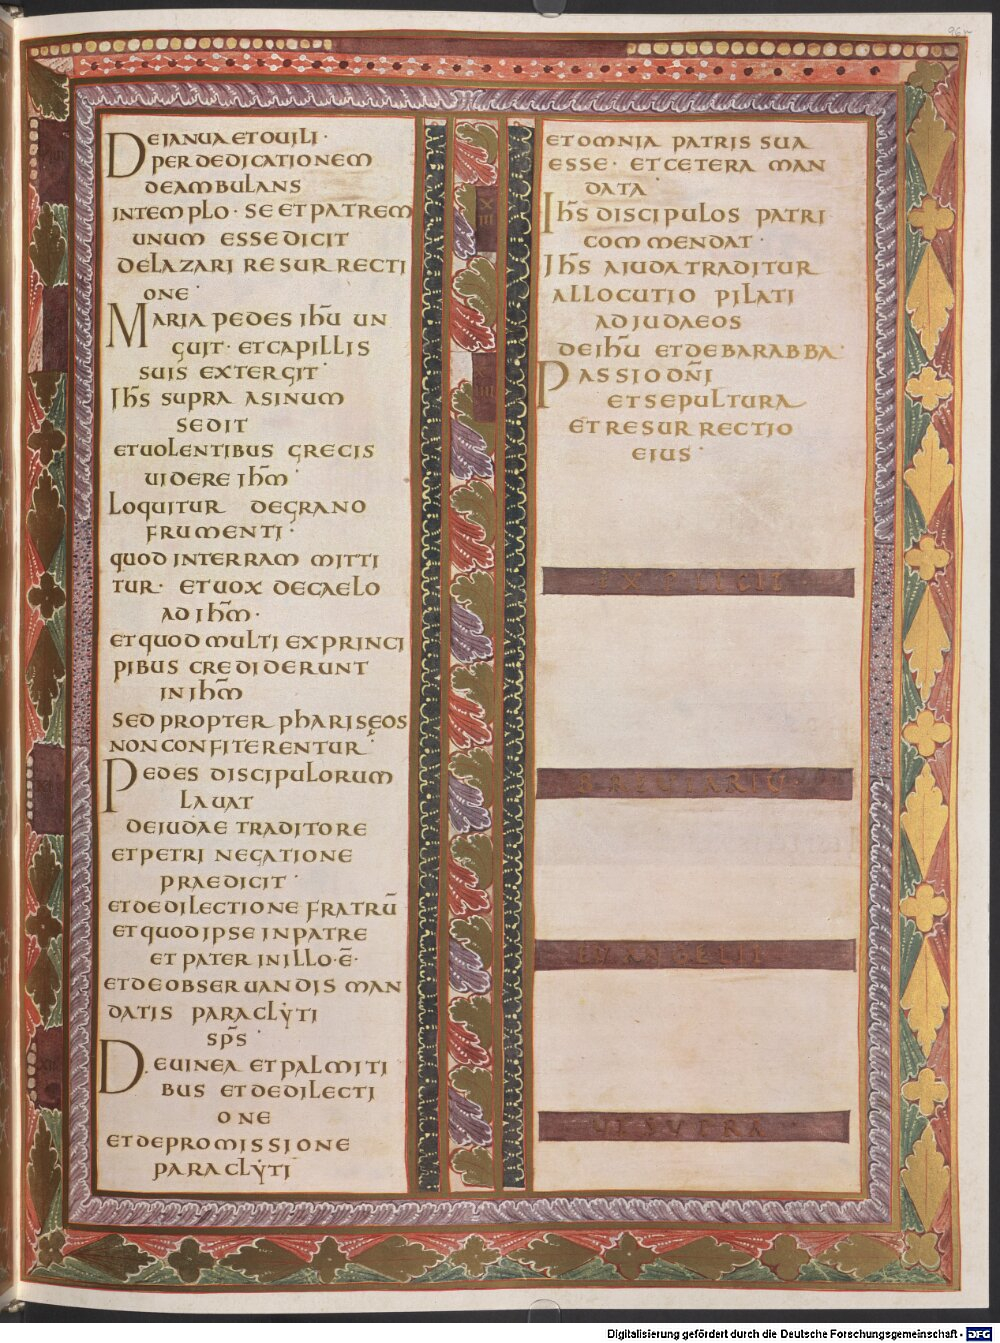 96r
DE IANUA ET OUILI ·
PER DEDICATIONEM
DEAMBULANS
IN TEMPLO · SE ET PATREM
UNUM ESSE DICIT
DE LAZARI RESURRECTI
ONE ·
MARIA PEDES IHŪ UN
GUIT · ET CAPILLIS
SUIS EXTERGIT ·
IHS̄ SUPRA ASINUM
SEDIT
ET UOLENTIBUS GRECIS
UIDERE IHM̄ ·
LOQUITUR DE GRANO
FRUMENTI ·
QUOD IN TERRAM MITTI
TUR · ET UOX DE CAELO
AD IHM̄ ·
ET QUOD MULTI EX PRINCI
PIBUS CREDIDERUNT
IN IHM̄
SED PROPTER PHARISĘOS
NON CONFITERENTUR ·
PEDES DISCIPULORUM
LAUAT
DE IUDAE TRADITORE
ET PETRI NEGATIONE
PRAEDICIT ·
ET DE DILECTIONE FRATRŪ
ET QUOD IPSE IN PATRE
ET PATER IN ILLO · Ē ·
ET DE OBSERUANDIS MAN
DATIS PARACLẎTI
SPS̄ ·
DE UINEA ET PALMITI
BUS ET DE DILECTI
ONE
ET DE PROMISSIONE
PARACLẎTI
XIII
ET OMNIA PATRIS SUA
ESSE · ET CETERA MAN
DATA ·
IHS̄ DISCIPULOS PATRI
COMMENDAT ·
IHS̄ A IUDA TRADITUR
ALLOCUTIO PILATI
AD IUDAEOS
DE IHŪ ET DE BARABBA ·
PASSIO DN̄I
ET SEPULTURA
ET RESURRECTIO
EIUS ·
EXPLICIT ·
BREUIARIŪ ·
EUANGELII
UT SUPRA
Digitalisierung gefördert durch die Deutsche Forschungsgemeinschaft - DFG